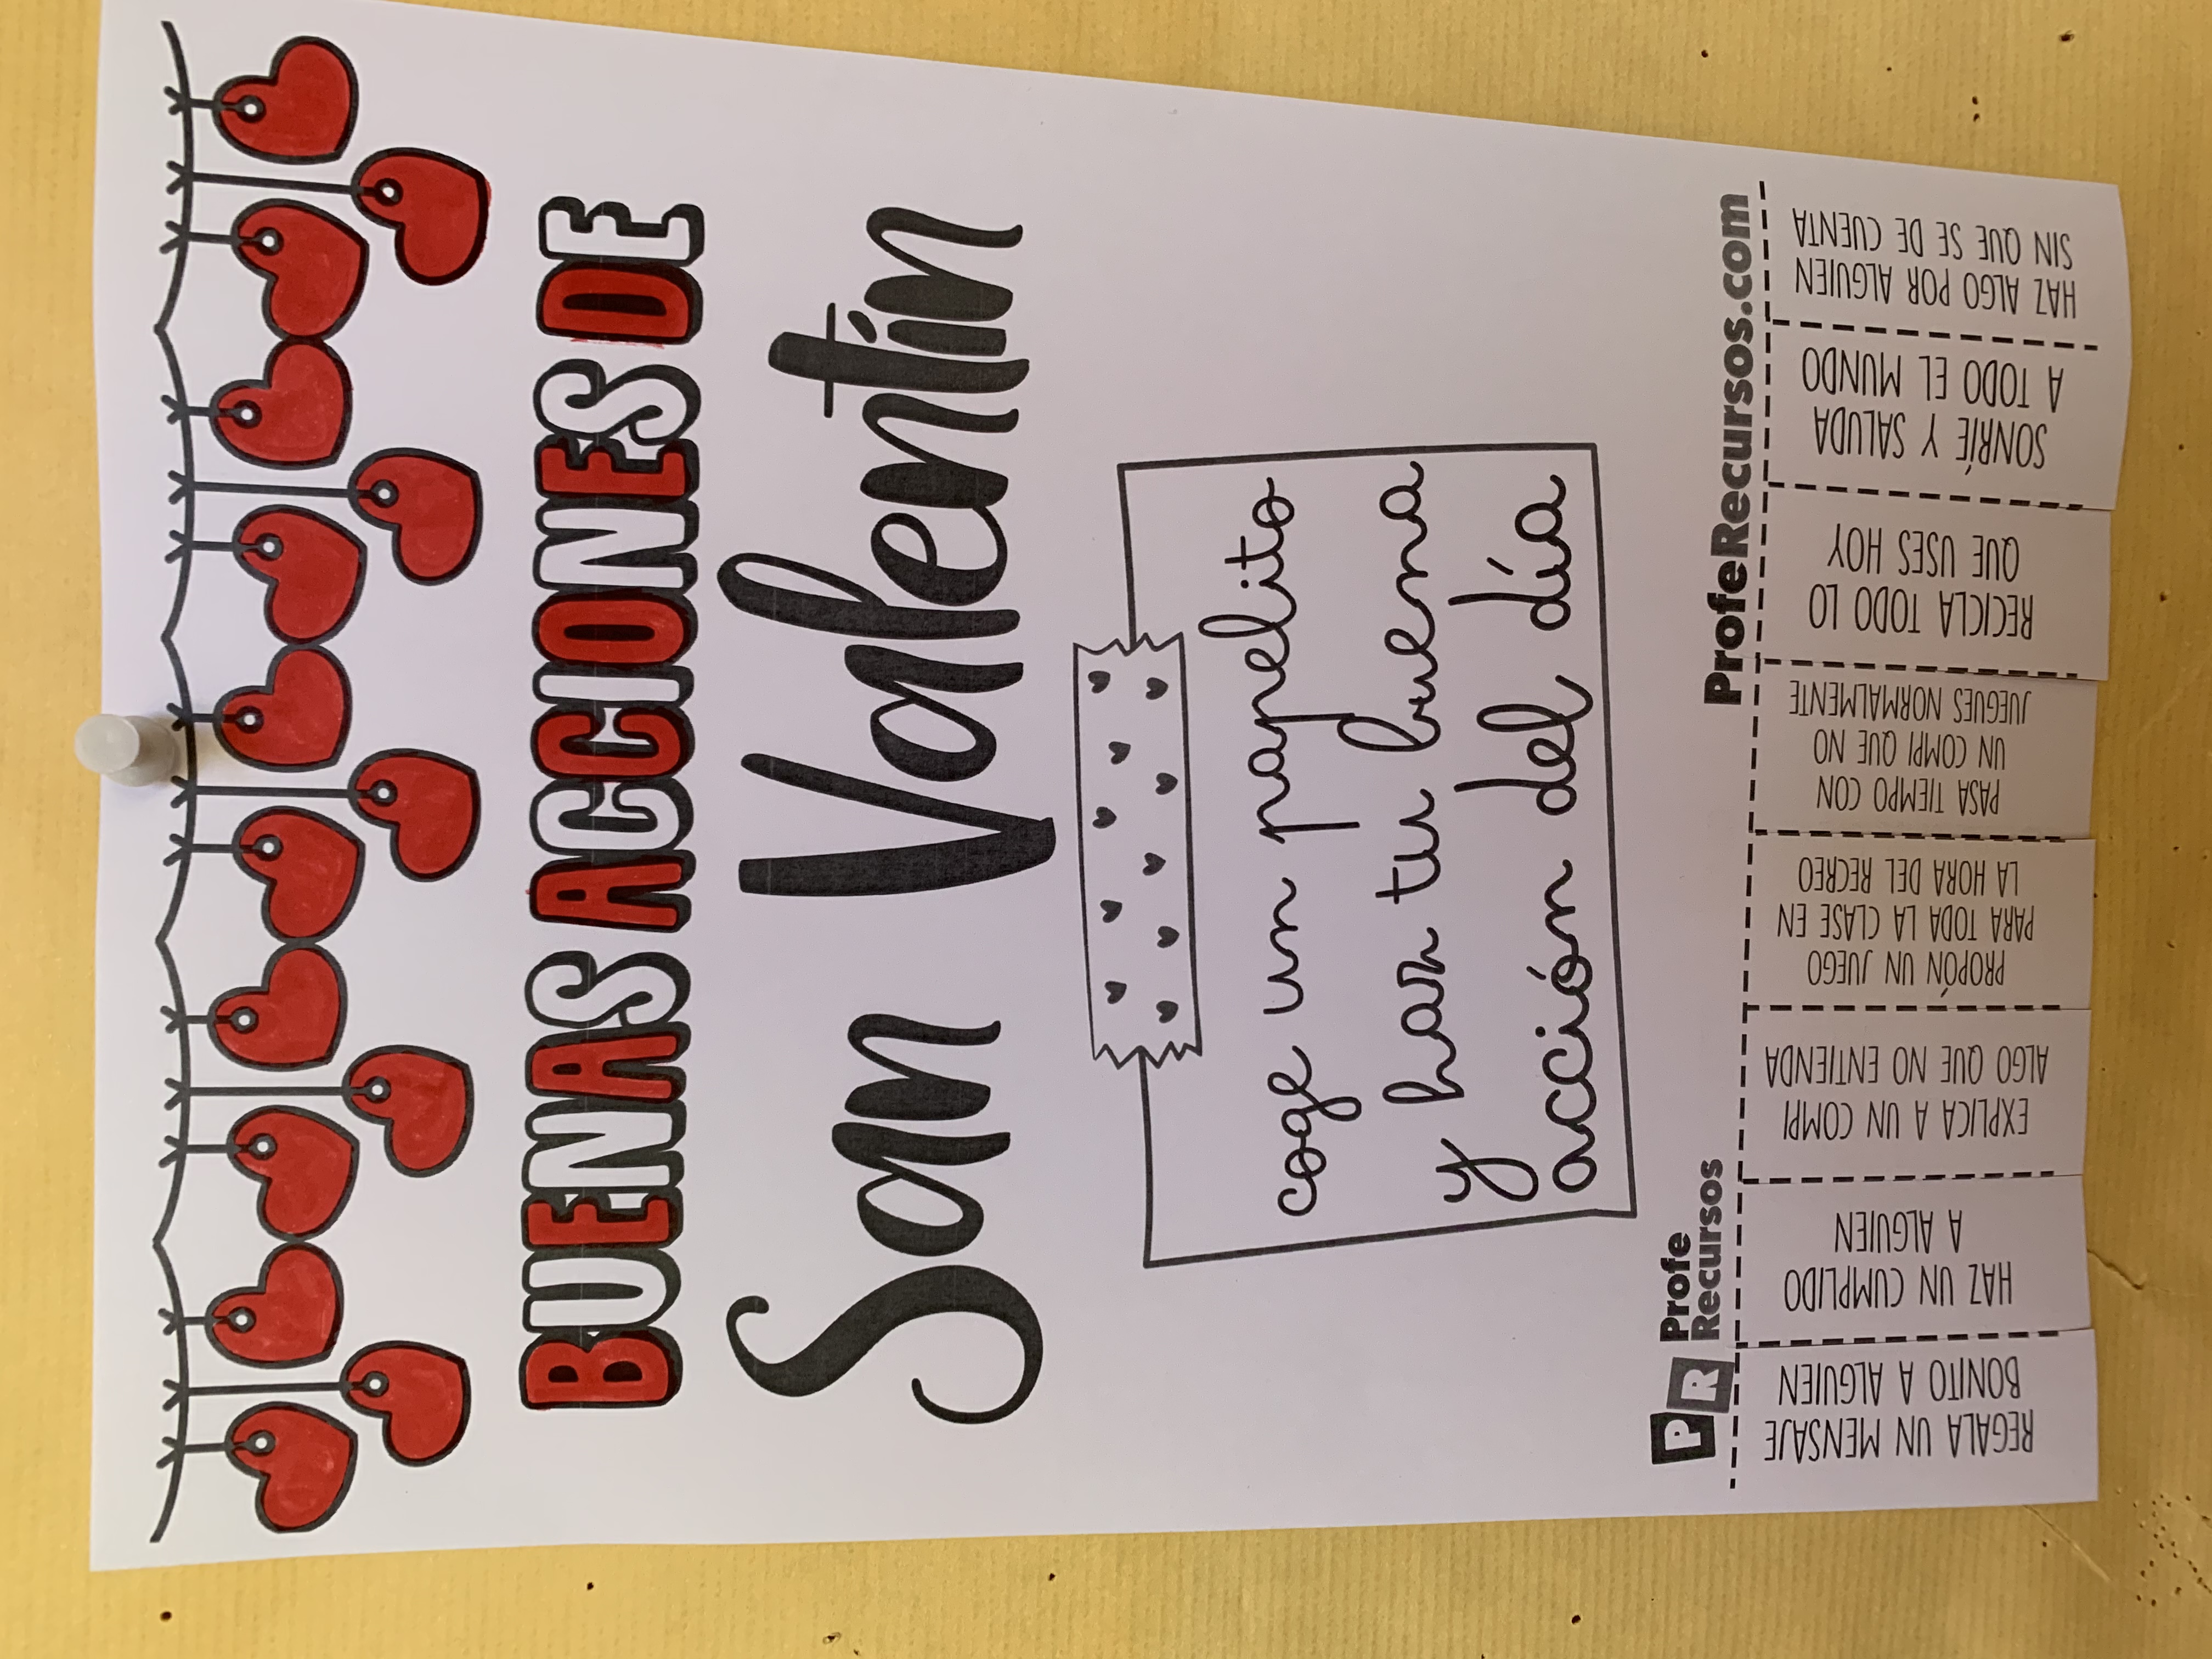 BUENAS ACCIONES DE
San Valentín
coge un papelito
y haz tu buena
acción del día
PR Profe
Recursos
ProfeRecursos.com
REGALA UN MENSAJE
BONITO A ALGUIEN
HAZ UN CUMPLIDO
A ALGUIEN
EXPLICA A UN COMPI
ALGO QUE NO ENTIENDA
PROPÓN UN JUEGO
PARA TODA LA CLASE EN
LA HORA DEL RECREO
PASA TIEMPO CON
UN COMPI QUE NO
JUEGUES NORMALMENTE
RECICLA TODO LO
QUE USES HOY
SONRÍE Y SALUDA
A TODO EL MUNDO
HAZ ALGO POR ALGUIEN
SIN QUE SE DE CUENTA